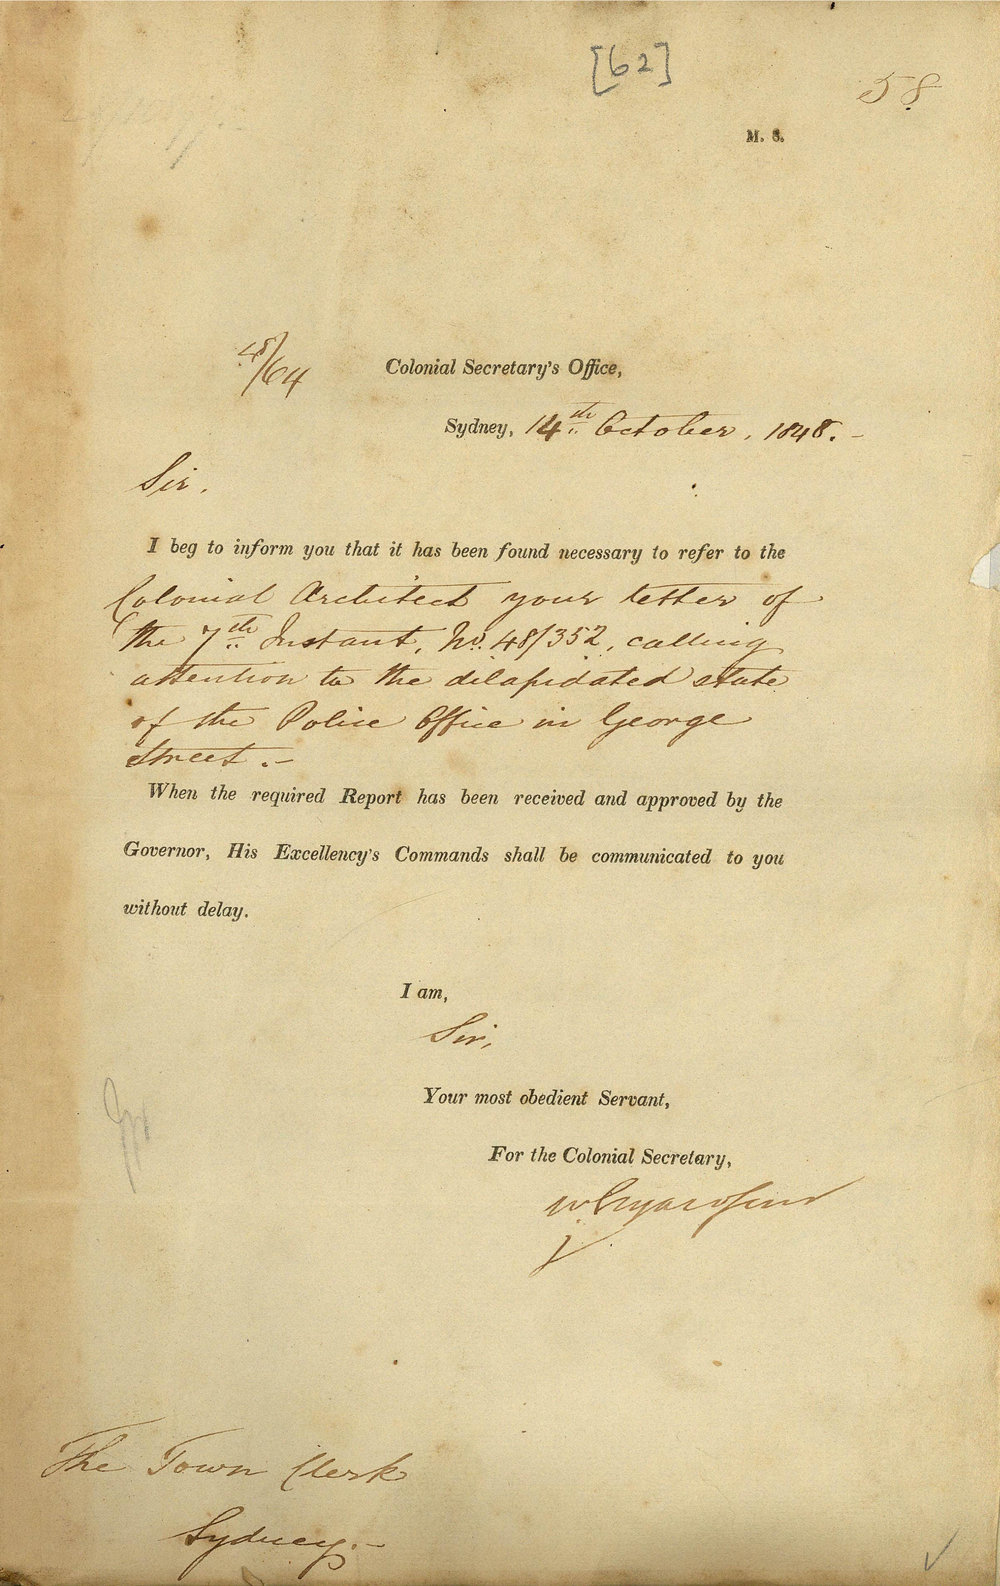 [62]
58
M. S.
48/64
Colonial Secretary's Office,
Sydney, 14th October, 1848.-
Sir.
I beg to inform you that it has been found necessary to refer to the
Colonial Architect your letter of
the 7th Instant, No. 48/352, calling
attention to the dilapidated state
of the Police Office in George
Street.-
When the required Report has been received and approved by the
Governor, His Excellency's Commands shall be communicated to you
without delay.
I am,
Sir,
Your most obedient Servant,
For the Colonial Secretary,
The Town Clerk
Sydney.-